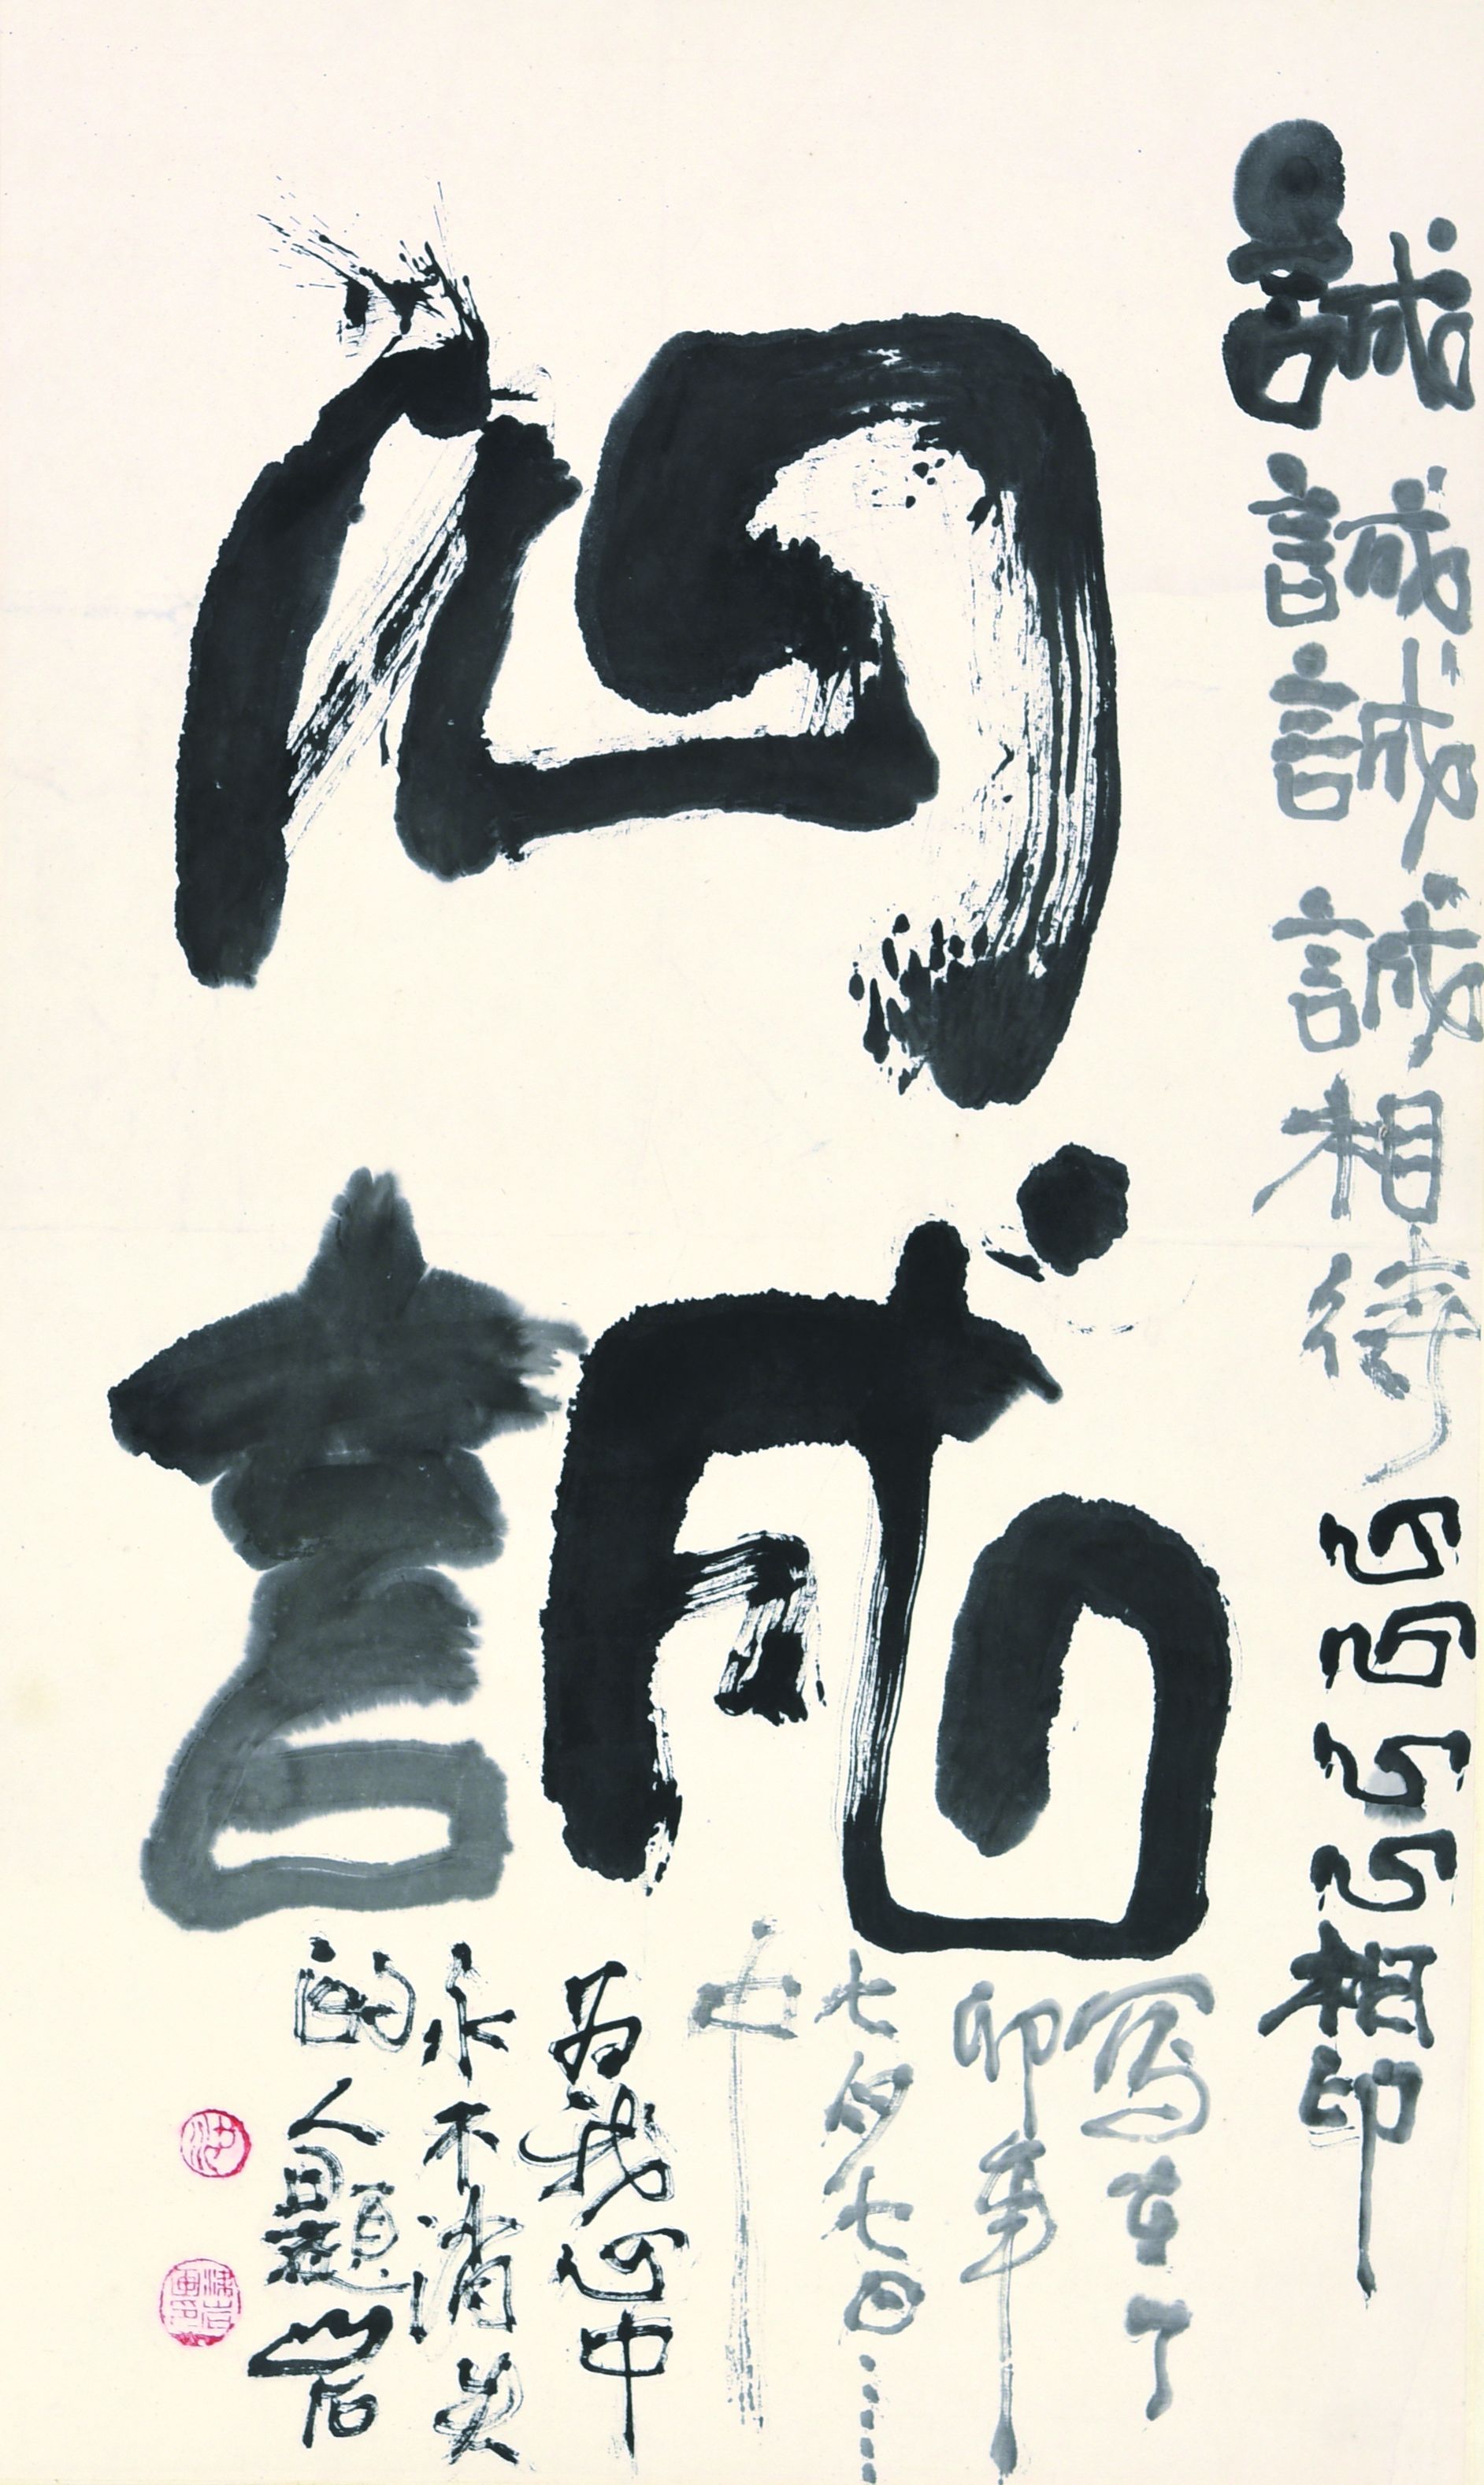 誠誠誠誠相待心心心心相印
心誠
寫在丁
卯年
七月七日……
為我心中
永不消失
的人題岩